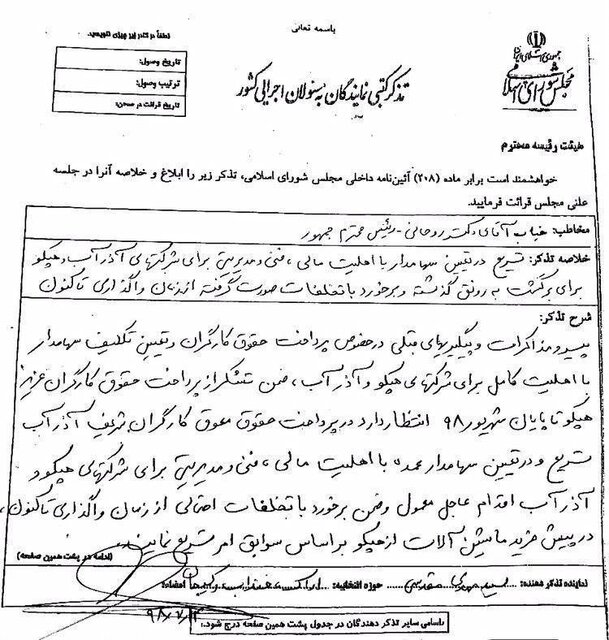 باسمه تعالی
لطفاً در کادر زیر چیزی ننویسید.
جمهوری اسلامی ایران
مجلس شورای اسلامی
تاریخ وصول:
ترتیب وصول:
تاریخ قرائت در صحن:
تذکر کتبی نمایندگان به مسئولان اجرائی کشور
هیئت رئیسه محترم
خواهشمند است برابر ماده (۲۰۸) آئین‌نامه داخلی مجلس شورای اسلامی، تذکر زیر را ابلاغ و خلاصه آنرا در جلسه
علنی مجلس قرائت فرمایید.
مخاطب: جناب آقای دکتر روحانی - رئیس محترم جمهور
خلاصه تذکر: تسریع در تعیین سهامدار با اهلیت مالی، فنی و مدیریتی برای شرکتهای آذرآب و هپکو
برای برگشت به رونق گذشته و برخورد با تخلفات صورت گرفته از زمان واگذاری تاکنون
شرح تذکر:
پیرو مذاکرات و پیگیریهای قبلی در خصوص پرداخت حقوق کارگران و تعیین تکلیف سهامدار
با اهلیت کامل برای شرکتهای هپکو و آذرآب، ضمن تشکر از پرداخت حقوق کارگران عزیز
هپکو تا پایان شهریور ۹۸ انتظار دارد در پرداخت حقوق معوق کارگران شریف آذرآب
تسریع و در تعیین سهامدار عمده با اهلیت مالی، فنی و مدیریتی برای شرکتهای هپکو و
آذرآب اقدام عاجل معمول و ضمن برخورد با تخلفات احتمالی از زمان واگذاری تاکنون،
در پیش خرید ماشین آلات از هپکو بر اساس سوابق امر تسریع نمایند.
(ادامه در پشت همین صفحه)
نماینده تذکر دهنده: سید مهدی مقدسی حوزه انتخابیه: اراک، امضاء:
۹۸/۷/
(اسامی سایر تذکر دهندگان در جدول پشت همین صفحه درج شود.)